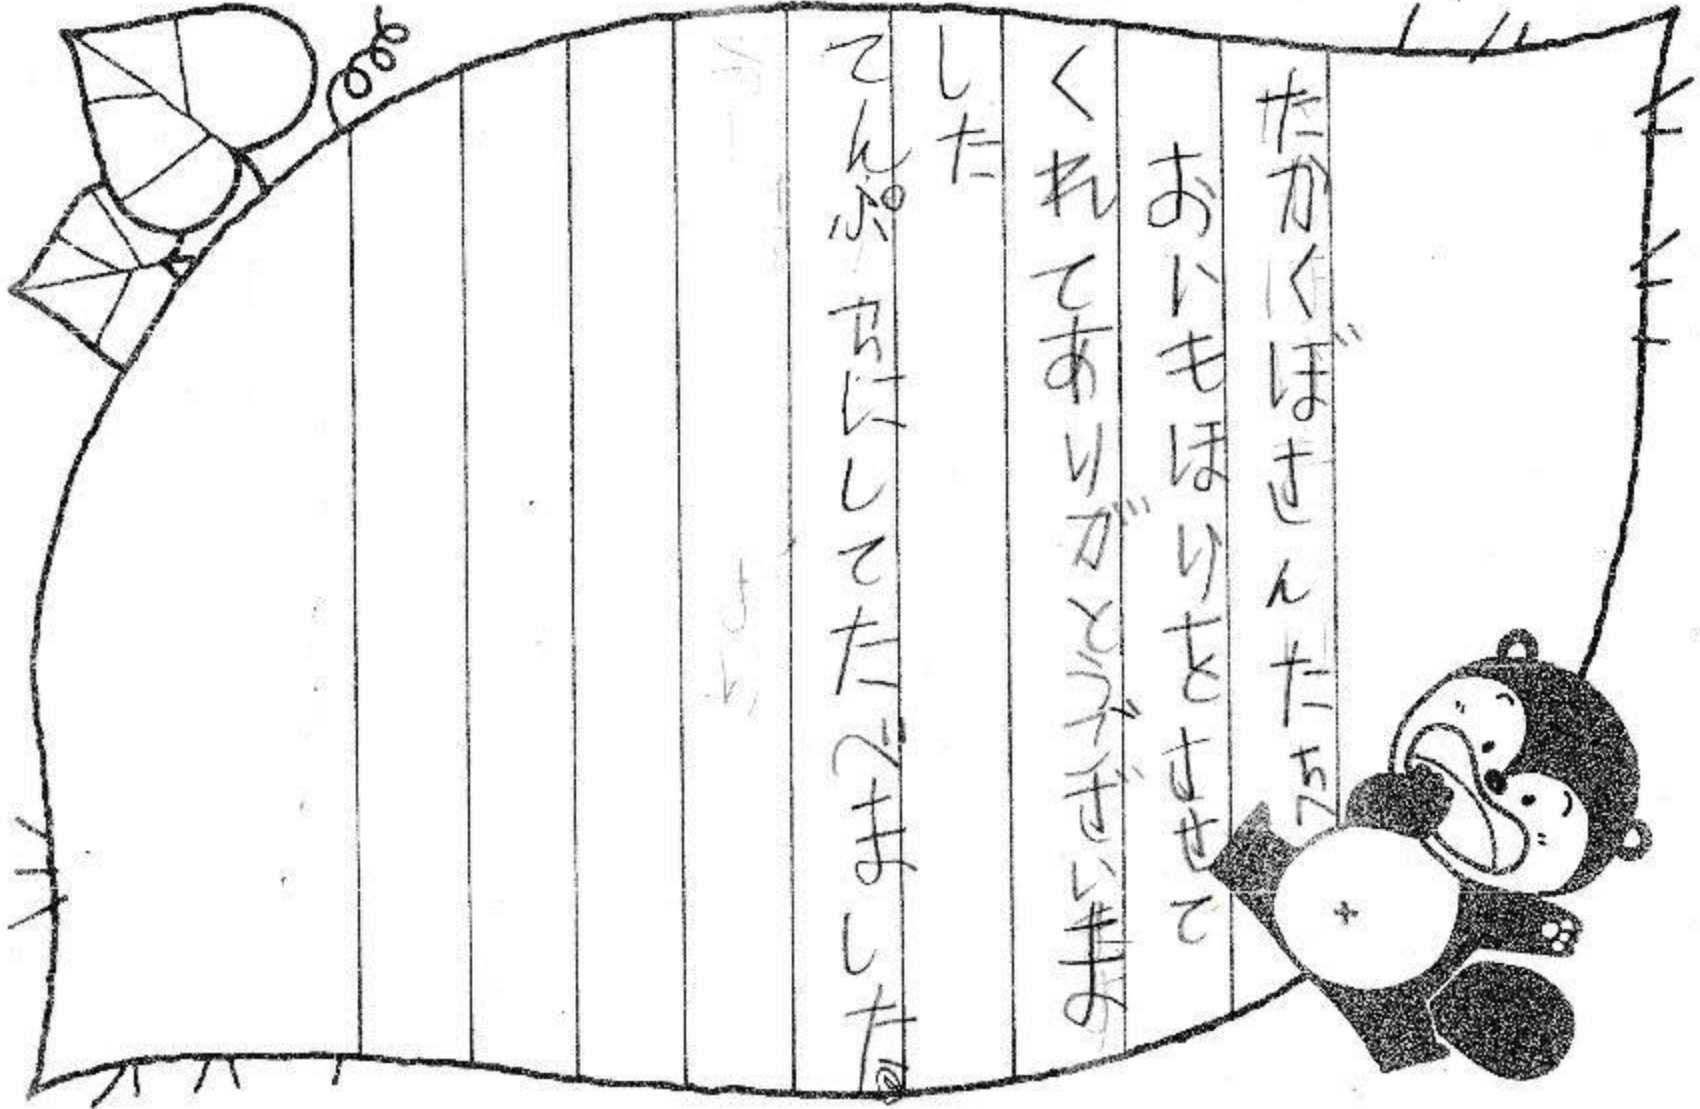 たかくぼさんたち
おにもほりをさせて
くれてありがとうござぎいま
した
てんぷらにしてたべました。